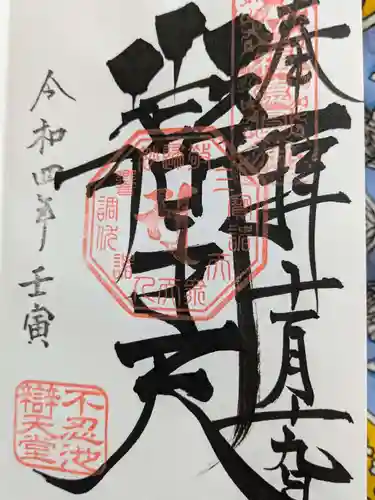 奉拝
十一月十九日
辯才天
令和四年 壬寅
不忍池
辯天堂